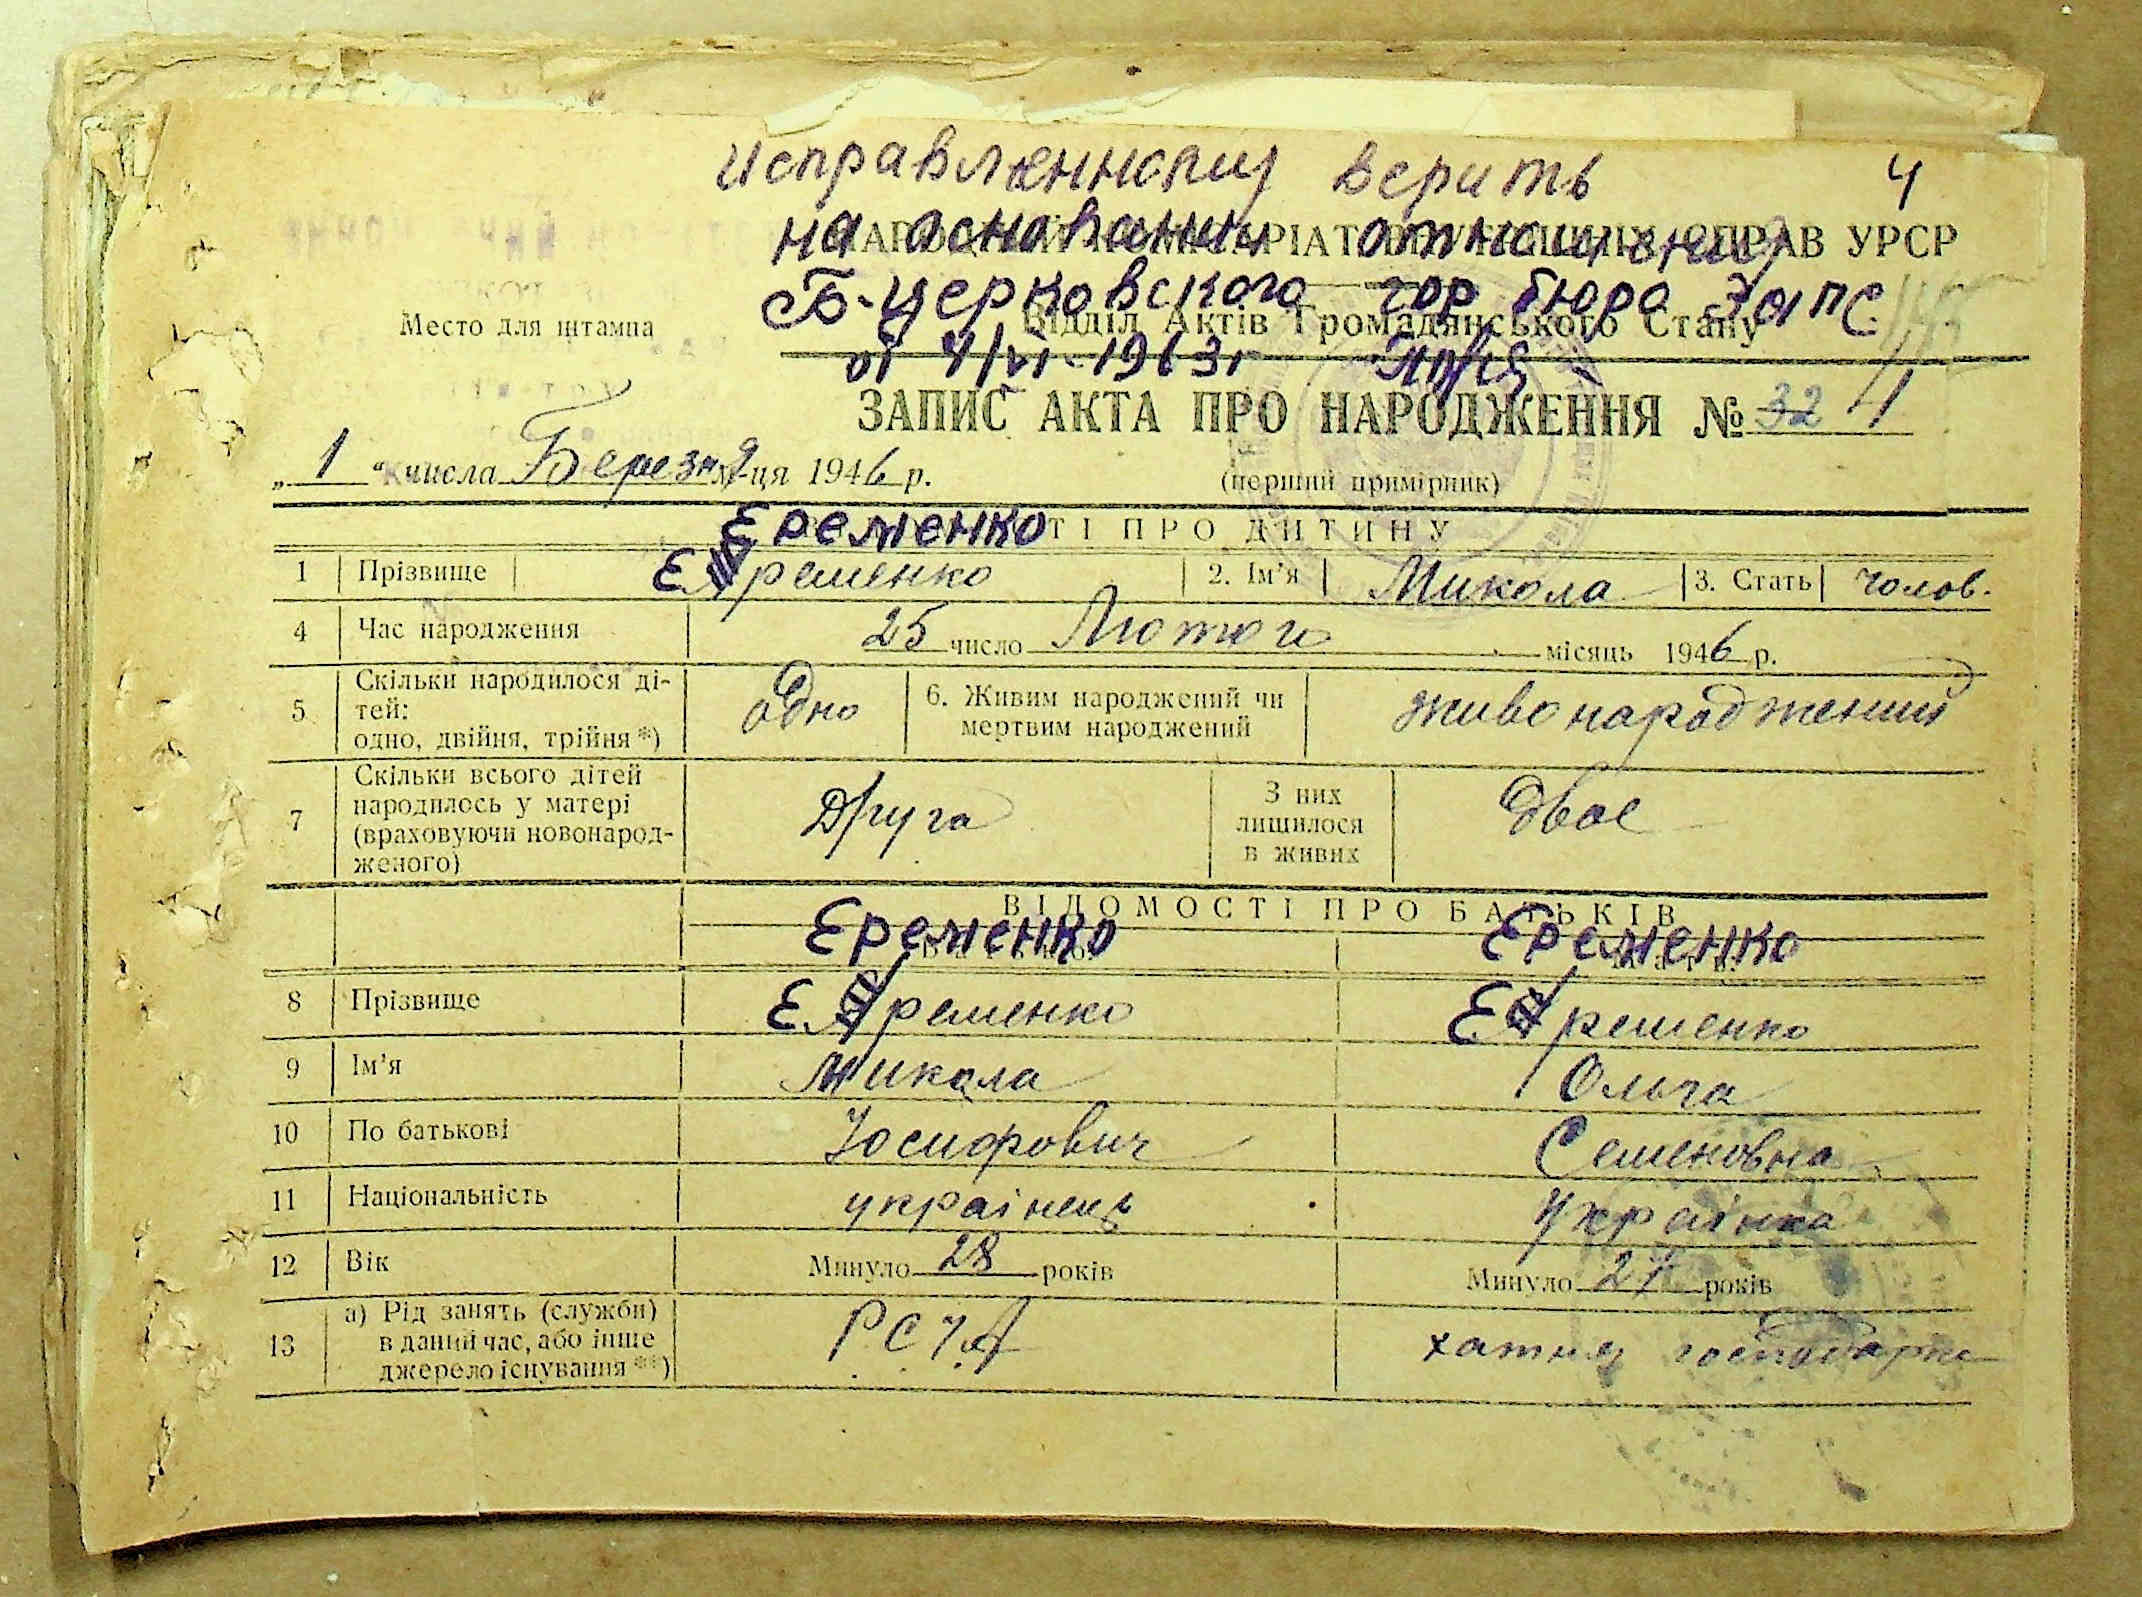 исправленному верить 4
на основании отношения
НАРОДНИЙ КОМІСАРІАТ ВНУТРІШНІХ СПРАВ УРСР
Б-церковского гор бюро Загс
Место для штампа
Відділ Актів Громадянського Стану
от 4/VI-1963г
ЗАПИС АКТА ПРО НАРОДЖЕННЯ № 32 4
„ 1 “ числа Березня м-ця 1946 р. (перший примірник)
Еременко
ТІ ПРО ДИТИНУ
1 Прізвище Еременко 2. Ім'я Микола 3. Стать чолов.
4 Час народження 25 число Лютого місяць 1946 р.
5 Скільки народилося ді-
тей:
одно, двійня, трійня*) одно 6. Живим народжений чи
мертвим народжений живонароджений
7 Скільки всього дітей
народилось у матері
(враховуючи новонарод-
женого) Друга З них
лишилося
в живих двое
ВІДОМОСТІ ПРО БАТЬКІВ
Еременко Еременко
8 Прізвище Еременко Еременко
9 Ім'я Микола Ольга
10 По батькові Йосифович Семеновна
11 Національність украінець Украінка
12 Вік Минуло 28 років Минуло 27 років
13 а) Рід занять (служби)
в даний час, або інше
джерело існування**) РСЧА хатня господарка